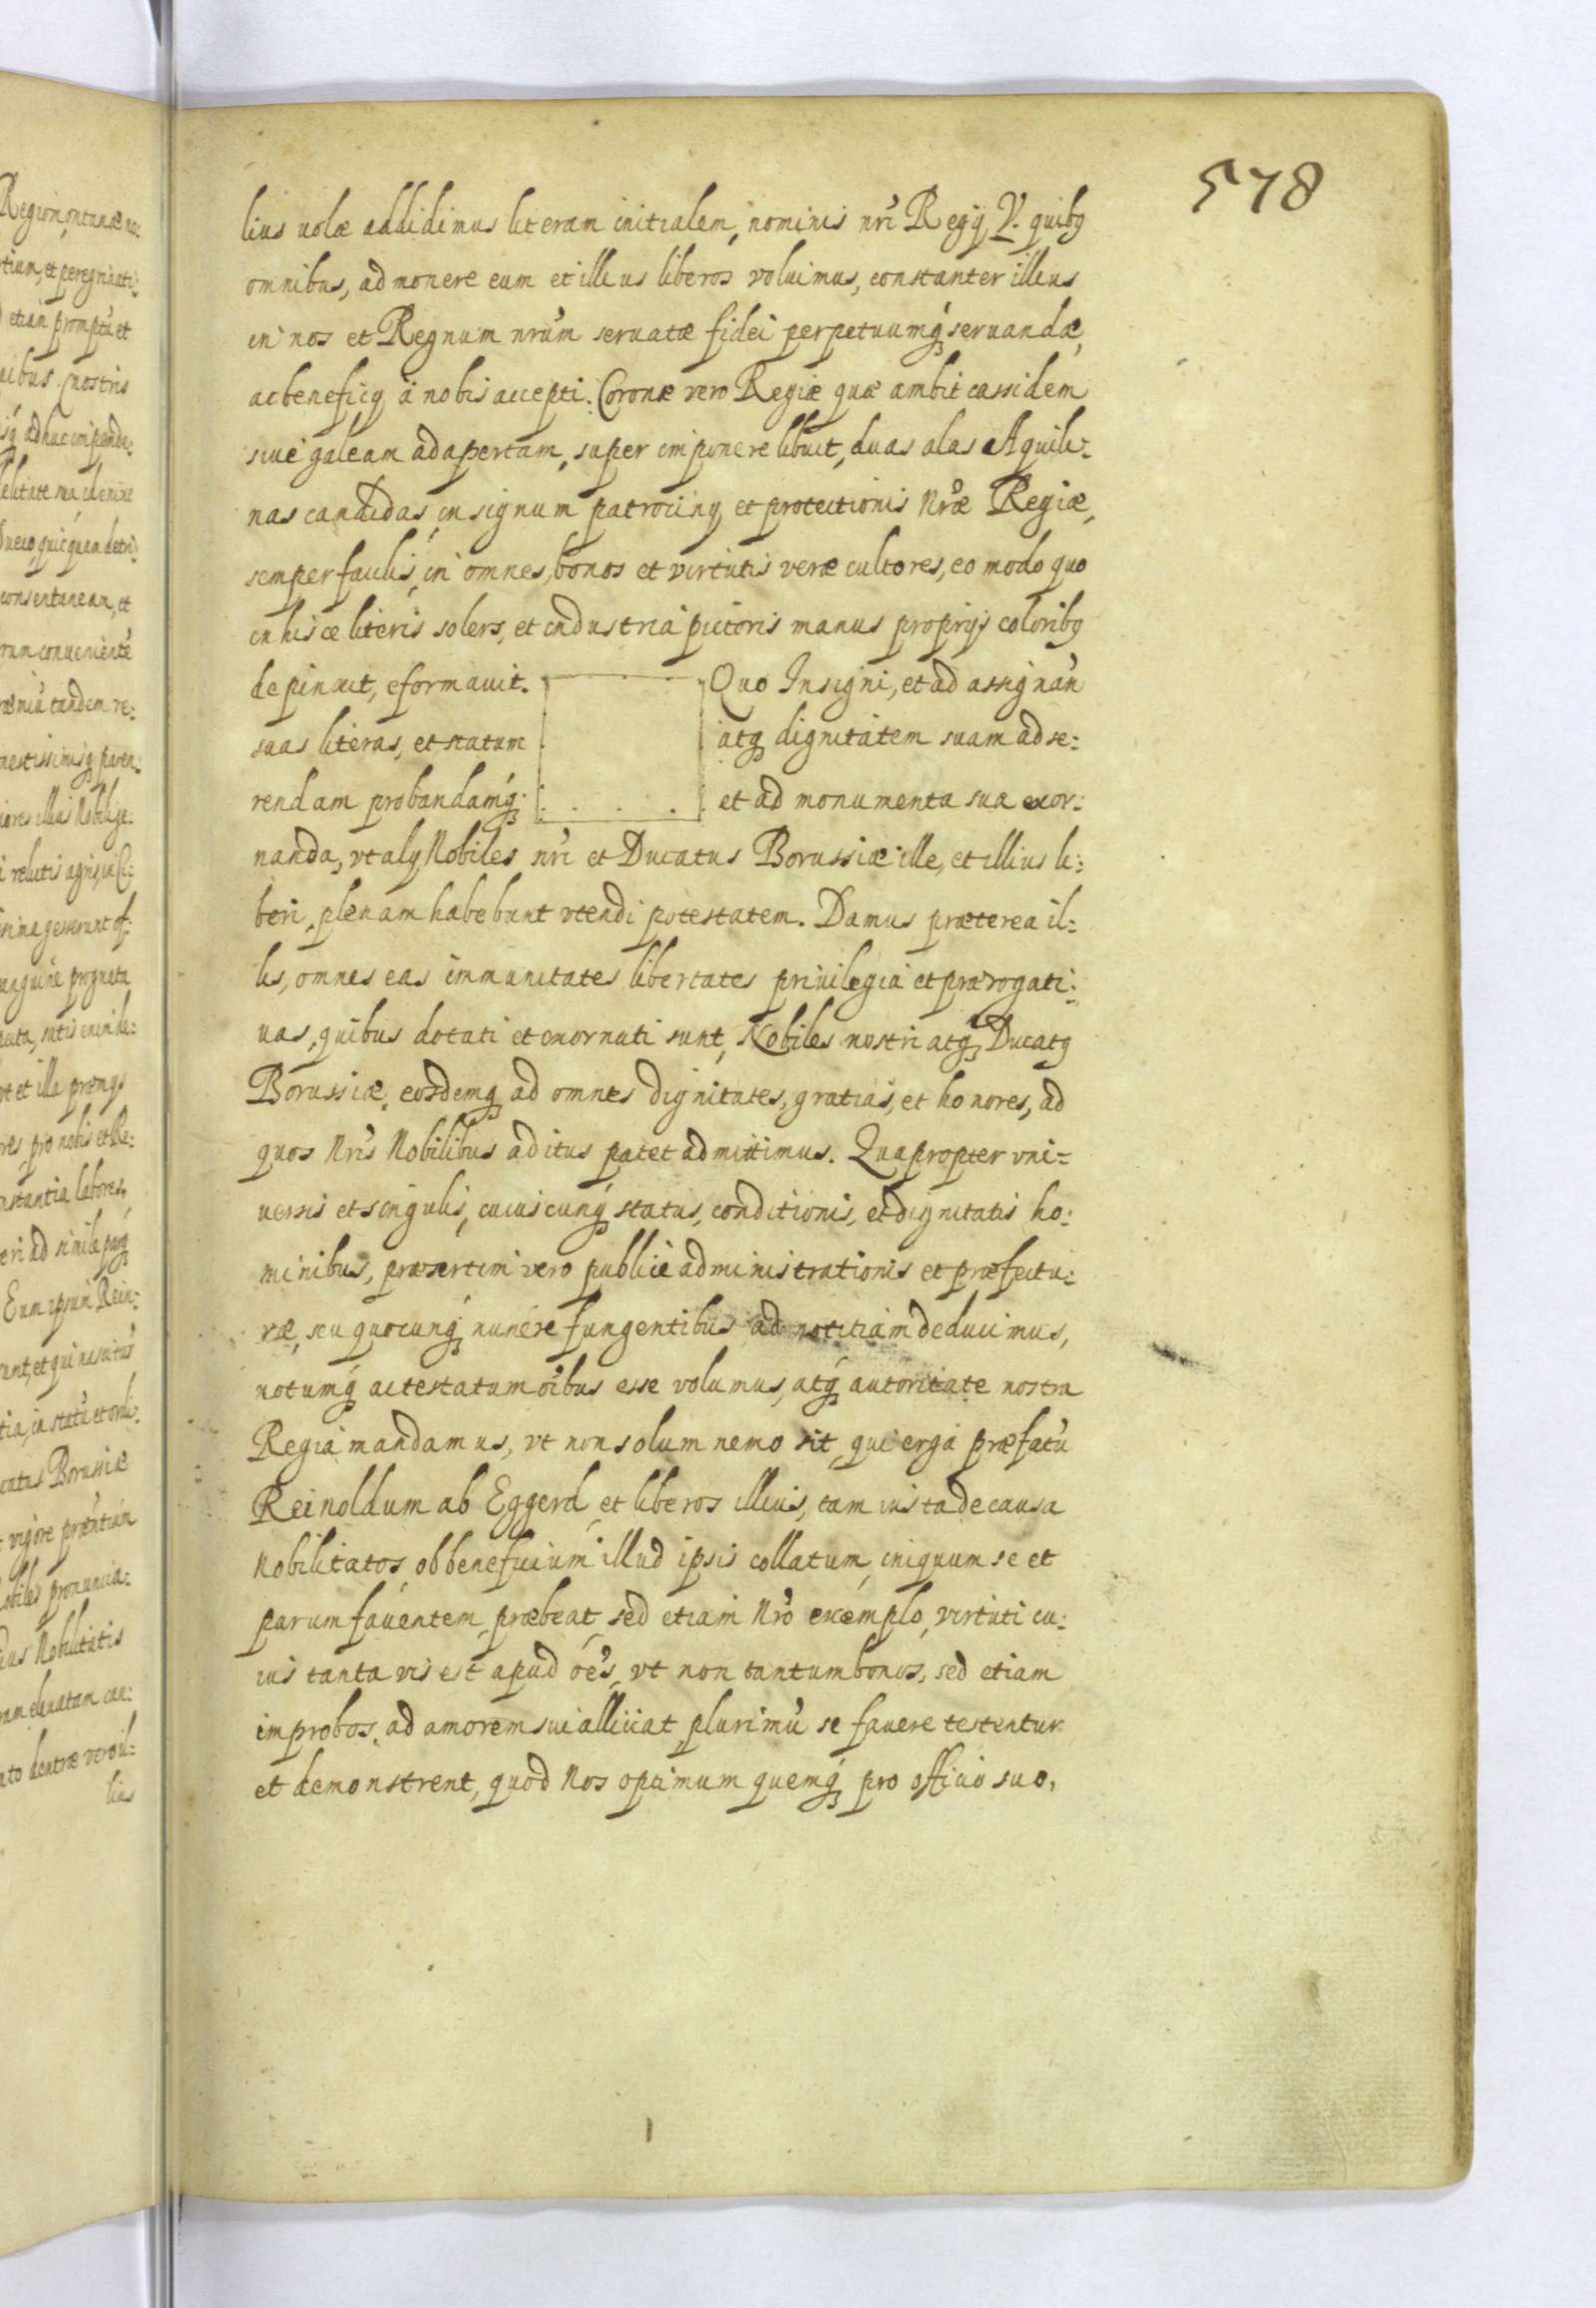 578
lius uolæ addidimus literam initialem, nominis nri Regij V. quibq
omnibus, admonere eum et illius liberos voluimus, constanter illius
in nos et Regnum nrum seruatæ fidei perpetuumq seruandæ,
ac beneficij à nobis accepti. Coronæ vero Regiæ quæ ambit cassidem
siue galeam adapertam, super imponere libuit, duas alas Aquili:
nas candidas, in signum patrocinij et protectionis Nræ Regiæ,
semper facilis, in omnes, bonos et virtutis veræ cultores, eo modo quo
in hisce literis solers, et industria pictoris manus proprijs coloribq
depinxit, eformauit. Quo Insigni, et ad assignan
suas literas, et statum atq dignitatem suam adse:
rendam probandamq: et ad monumenta sua exor:
nanda, vt alij Nobiles nri et Ducatus Borussiæ ille, et illius li:
beri, plenam habebunt vtendi potestatem. Damus præterea il:
lis, omnes eas immunitates libertates priuilegia et prærogati:
uas, quibus dotati et exornati sunt, Nobiles nostri atq Ducatq
Borussiæ, eosdemq ad omnes dignitates, gratias, et honores, ad
quos Nris Nobilibus aditus patet admittimus. Quapropter vni=
uersis et singulis, cuiuscunq status, conditionis, et dignitatis ho:
minibus, præsertim vero publicè administrationis et præfectu:
ræ, seu quocunq munere fungentibus ad notitiam deducimus,
notumq ac testatum oibus esse volumus, atq autoritate nostra
Regia mandamus, vt non solum nemo sit, qui erga præfatu
Reinoldum ab Eggerd, et liberos illius, tam iusta de causa
Nobilitatos, ob beneficium illud ipsis collatum, iniquum se et
parum fauentem, præbeat, sed etiam Nro exemplo, virtuti cu:
ius tanta vis est apud oes, vt non tantum bonos, sed etiam
improbos, ad amorem sui alliciat, plurimu se fauere testentur
et demonstrent, quod Nos optimum quemq pro officio suo,